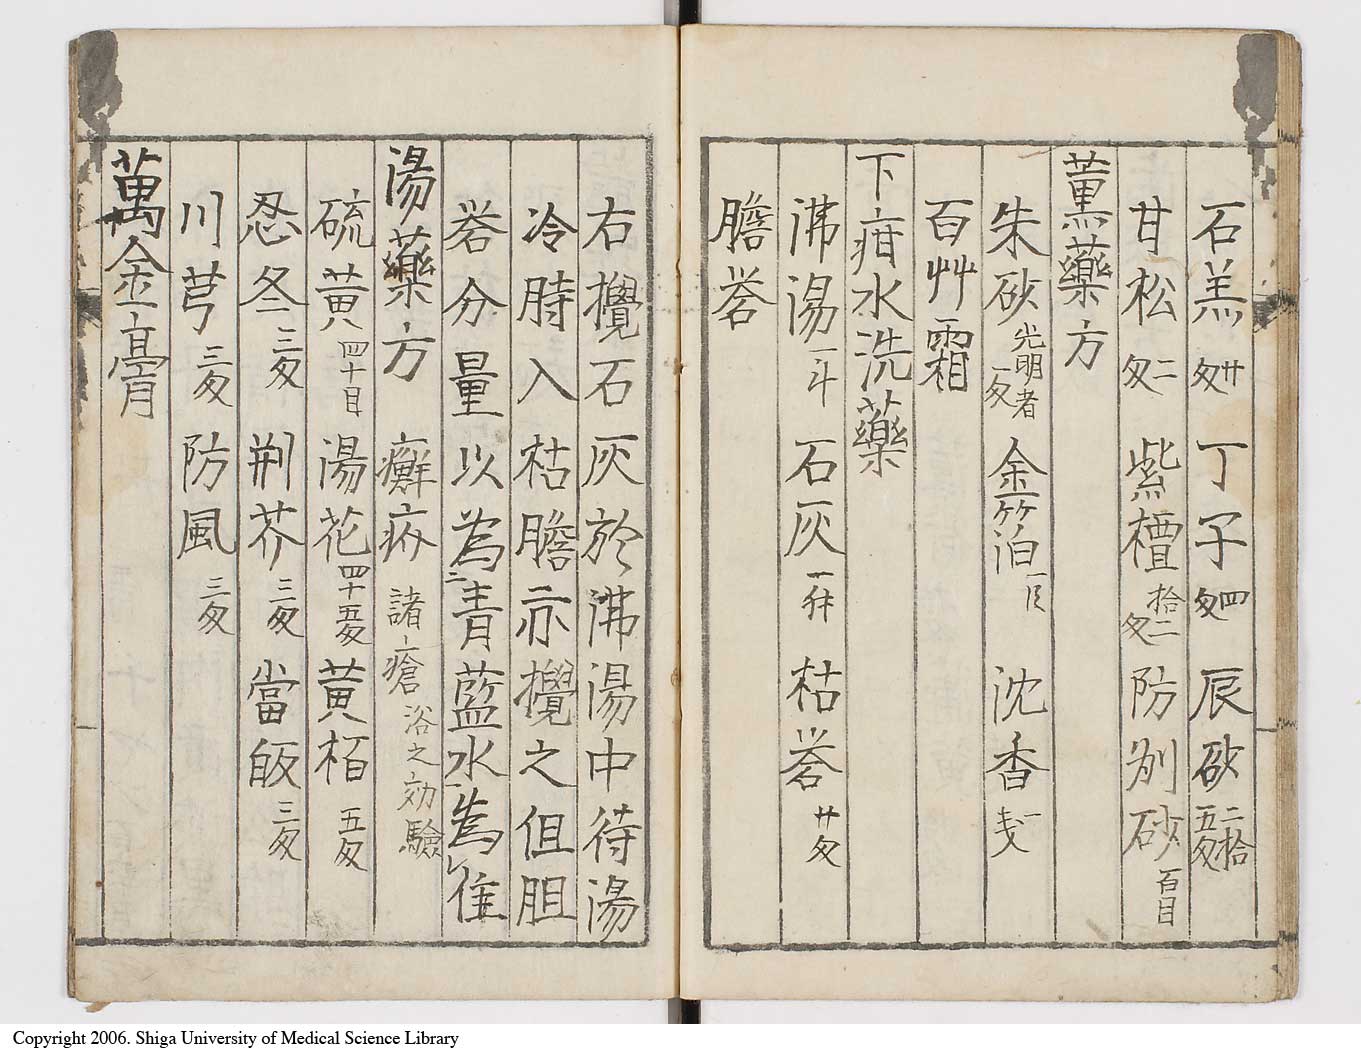 石羔 廿匁 丁子 四匁 辰砂 二拾五匁
甘松 二匁 紫檀 拾二匁 防別砂 百目
薫藥方
朱砂 光明者一匁 金箔 沈香
百艸霜
下疳水洗藥
沸湯 一斗 石灰 一升 枯礬 廿匁
膽礬
右攪石灰於沸湯中待湯
冷時入枯膽示攪之但胆
礬分量以為二青藍水一為レ准
湯藥方 癬疥 諸瘡浴之効驗
硫黄 四十目 湯花 四十五匁 黄栢 五匁
忍冬 三匁 荆芥 三匁 當皈 三匁
川芎 三匁 防風 三匁
萬金膏
Copyright 2006. Shiga University of Medical Science Library